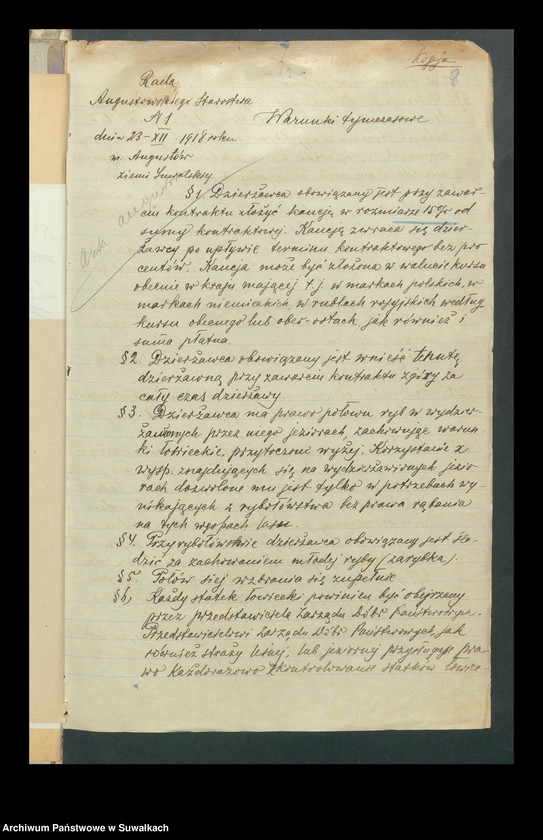 Kopja
8
Rada
Augustowskiego Starostwa
№ 1
Warunki tymczasowe
dnia 23-XII 1918 roku
m. Augustów
ziemi Suwalskiej.
§1. Dzierżawca obowiązany jest przy zawar-
ciu kontraktu złożyć kaucję w rozmiarze 15% od
sumy kontraktowej. Kaucja zwraca się dzier-
żawcy po upływie terminu kontraktowego bez pro
centów. Kaucja może być złożona w walucie kursu
obecnie w kraju mającej t.j. w markach polskich, w
markach niemieckich, w rublach rosyjskich według
kursu obecnego lub ober-ostach jak również i
suma płatna.
§2. Dzierżawca obowiązany jest wnieść tenutę
dzierżawną przy zawarciu kontraktu zgóry za
cały czas dzierżawy.
§3. Dzierżawca ma prawo połowu ryb w wydzier-
żawionych przez niego jeziorach, zachowując warun
ki łowieckie, przytoczone wyżej. Korzystanie z
wysp, znajdujących się na wydzierżawionych jezio-
rach dozwolone mu jest tylko w potrzebach wy-
nikających z rybołówstwa bez prawa rąbania
na tych wyspach lasu.
§4. Przy rybołówstwie dzierżawca obowiązany jest śle-
dzić za zachowaniem młodej ryby (zarybka).
§5. Połów siej wzbrania się zupełnie
§6. Każdy statek łowiecki powinien być obejrzany
przez przedstawiciela Zarządu Dóbr Państwowych.
Przedstawicielowi Zarządu Dóbr Państwowych, jak
również straży leśnej, lub jeziornej przysługuje pra
wo każdorazowo skontrolowanie statków łowiec
Archiwum Państwowe w Suwałkach